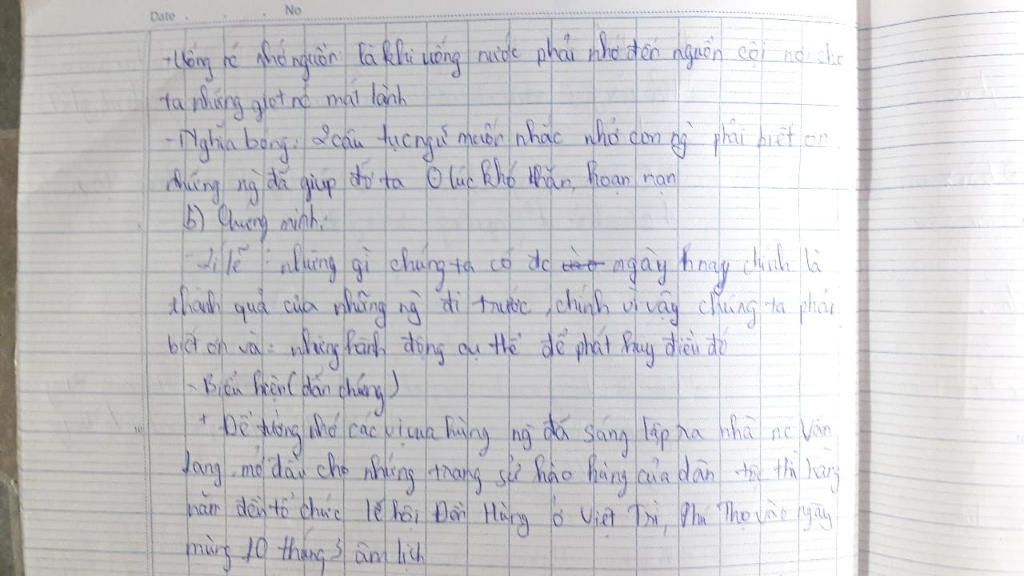 Date No
- Uống nc nhớ nguồn là khi uống nước phải nhớ đến nguồn cội nơi cho
ta những giọt nc mát lành
- Nghĩa bóng: 2 câu tục ngữ muốn nhắc nhở con ng phải biết ơn
những ng đã giúp đỡ ta lúc khó khăn, hoạn nạn
b) Chứng minh:
- Lí lẽ: những gì chúng ta có dc ngày hnay chính là
thành quả của những ng đi trước, chính vì vậy chúng ta phải
biết ơn và những hành động cụ thể để phát huy điều đó
- Biểu hiện (dẫn chứng)
+ Để tưởng nhớ các vị vua hùng ng đã sáng lập ra nhà nc Văn
lang, mở đầu cho những trang sử hào hùng của dân tộc thì hàng
năm đều tổ chức lễ hội Đền Hùng ở Việt Trì, Phú Thọ vào ngày
mùng 10 tháng 3 âm lịch